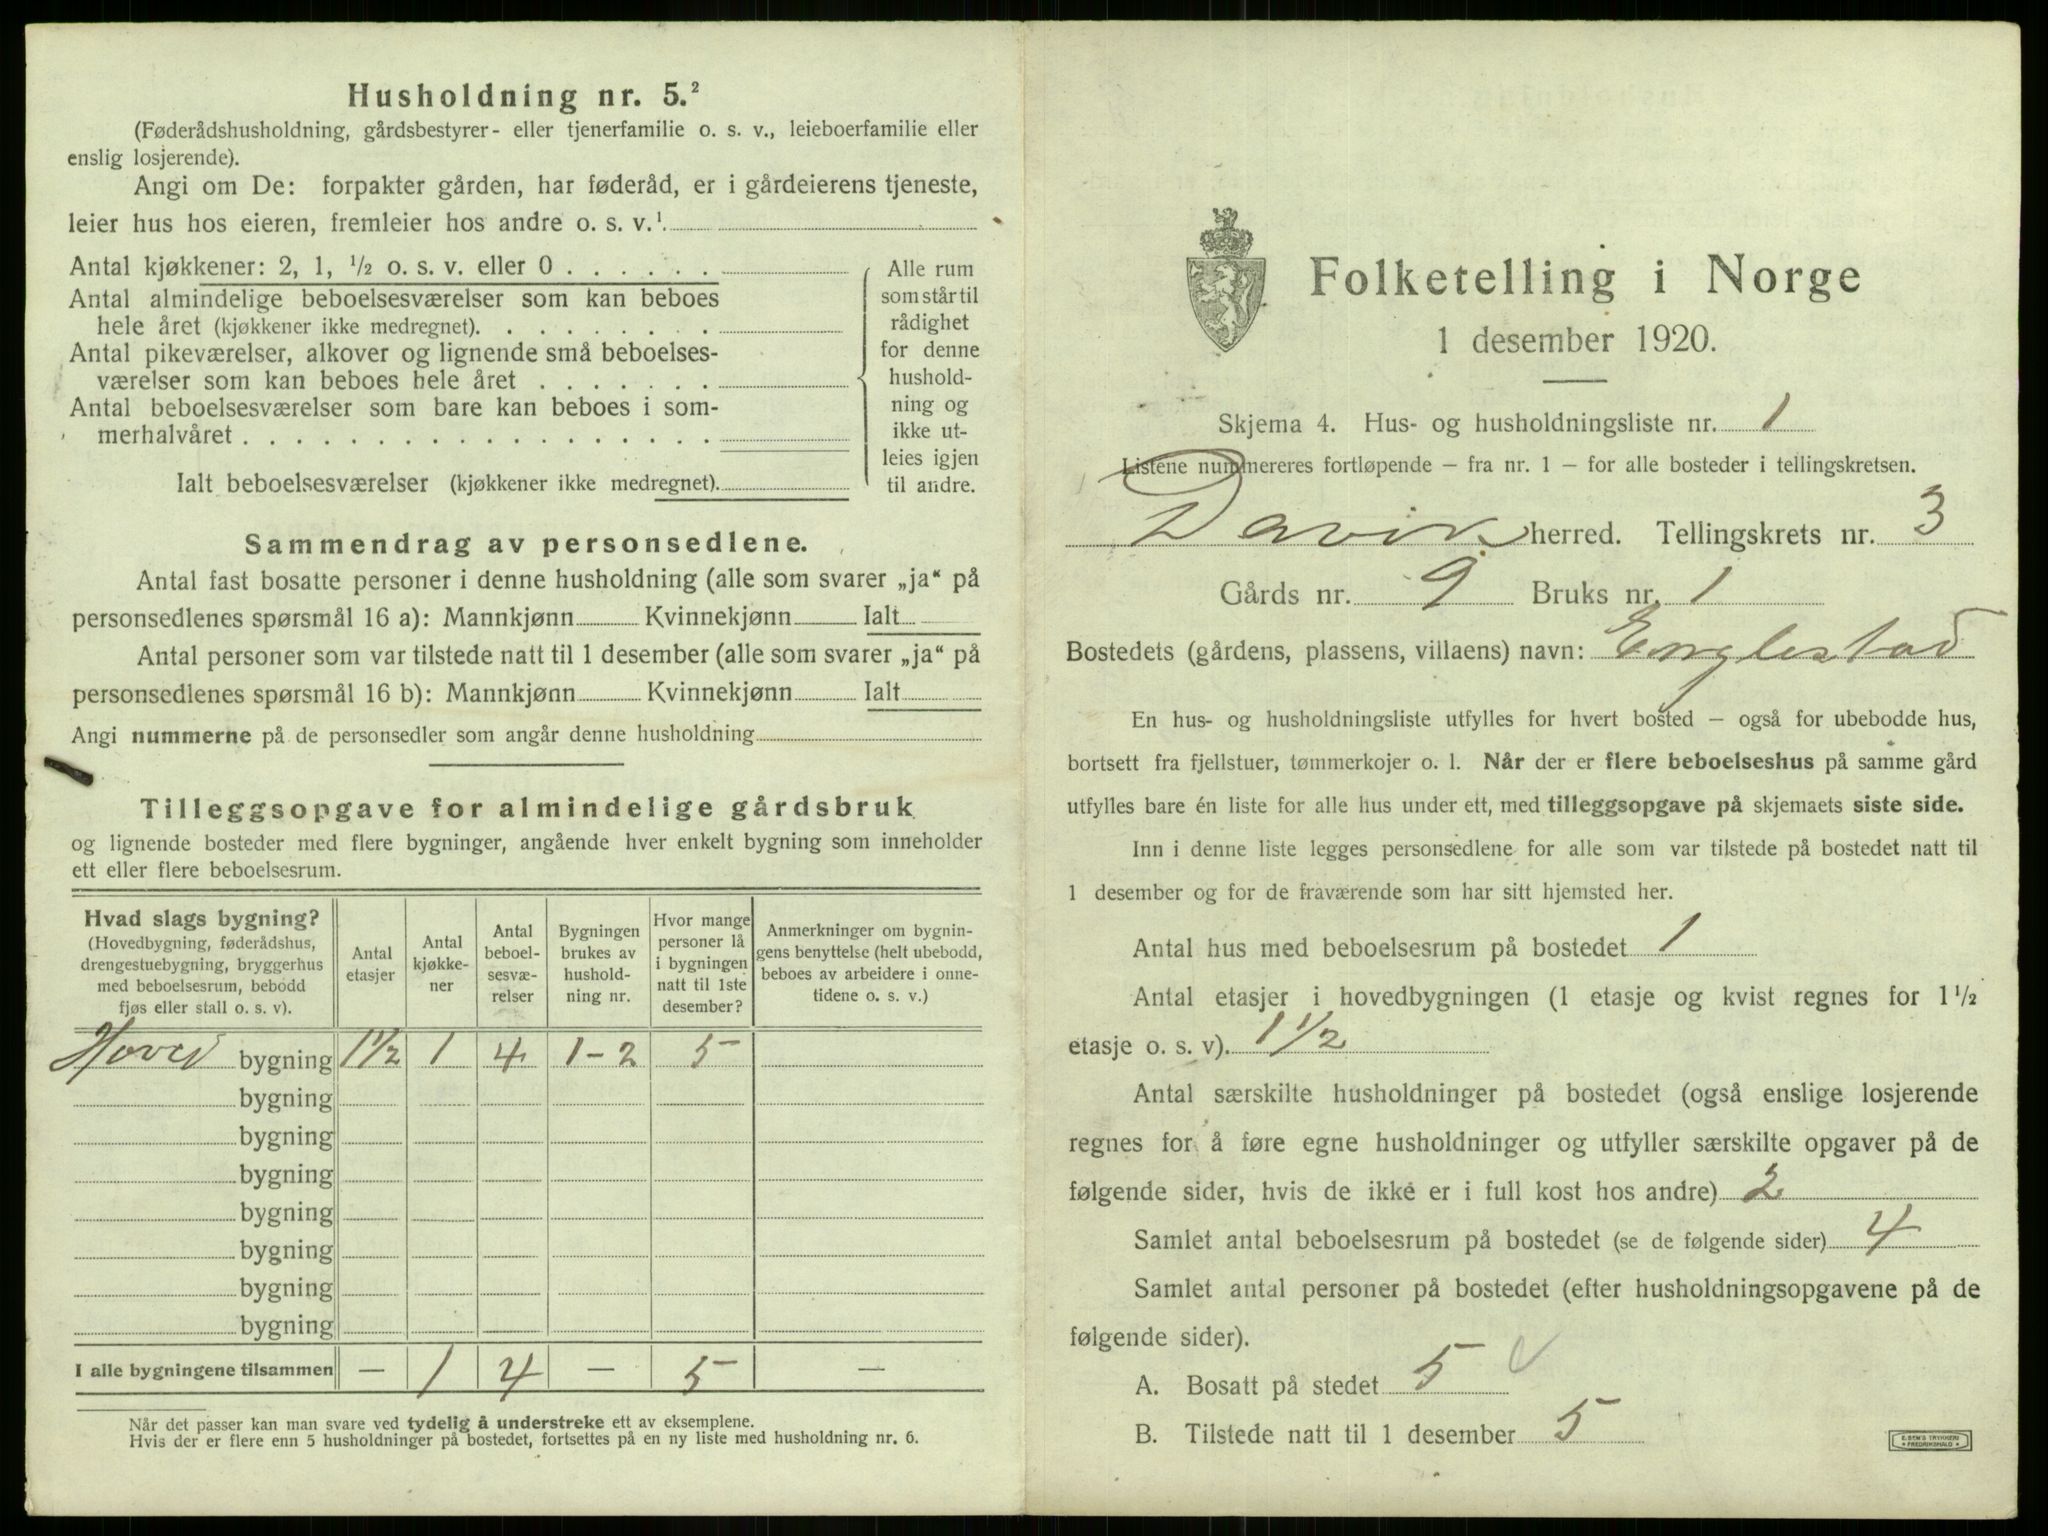 Husholdning nr. 5.²
(Føderådshusholdning, gårdsbestyrer- eller tjenerfamilie o. s. v., leieboerfamilie eller
enslig losjerende).
Angi om De: forpakter gården, har føderåd, er i gårdeierens tjeneste,
leier hus hos eieren, fremleier hos andre o. s. v.¹
Antal kjøkkener: 2, 1, ½ o. s. v. eller 0
Antal almindelige beboelsesværelser som kan beboes
hele året (kjøkkener ikke medregnet)
Antal pikeværelser, alkover og lignende små beboelses-
værelser som kan beboes hele året
Antal beboelsesværelser som bare kan beboes i som-
merhalvåret
Ialt beboelsesværelser (kjøkkener ikke medregnet)
Alle rum
som står til
rådighet
for denne
hushold-
ning og
ikke ut-
leies igjen
til andre.
Sammendrag av personsedlene.
Antal fast bosatte personer i denne husholdning (alle som svarer „ja“ på
personsedlenes spørsmål 16 a): Mannkjønn Kvinnekjønn Ialt
Antal personer som var tilstede natt til 1 desember (alle som svarer „ja“ på
personsedlenes spørsmål 16 b): Mannkjønn Kvinnekjønn Ialt
Angi nummerne på de personsedler som angår denne husholdning
Tilleggsopgave for almindelige gårdsbruk
og lignende bosteder med flere bygninger, angående hver enkelt bygning som inneholder
ett eller flere beboelsesrum.
Hvad slags bygning?
(Hovedbygning, føderådshus,
drengestuebygning, bryggerhus
med beboelsesrum, bebodd
fjøs eller stall o. s. v).
Antal
etasjer
Antal
kjøkke-
ner
Antal
beboel-
sesvæ-
relser
Bygningen
brukes av
hushold-
ning nr.
Hvor mange
personer lå
i bygningen
natt til 1ste
desember?
Anmerkninger om bygnin-
gens benyttelse (helt ubebodd,
beboes av arbeidere i onne-
tidene o. s. v.)
Hoved bygning 1½ 1 4 1-2 5
bygning
bygning
bygning
bygning
bygning
bygning
bygning
I alle bygningene tilsammen — 1 4 — 5 —
Når det passer kan man svare ved tydelig å understreke ett av eksemplene.
Hvis der er flere enn 5 husholdninger på bostedet, fortsettes på en ny liste med husholdning nr. 6.
Folketelling i Norge
1 desember 1920.
Skjema 4. Hus- og husholdningsliste nr. 1
Listene nummereres fortløpende — fra nr. 1 — for alle bosteder i tellingskretsen.
Davik herred. Tellingskrets nr. 3
Gårds nr. 9 Bruks nr. 1
Bostedets (gårdens, plassens, villaens) navn: Englestad
En hus- og husholdningsliste utfylles for hvert bosted — også for ubebodde hus,
bortsett fra fjellstuer, tømmerkojer o. l. Når der er flere beboelseshus på samme gård
utfylles bare én liste for alle hus under ett, med tilleggsopgave på skjemaets siste side.
Inn i denne liste legges personsedlene for alle som var tilstede på bostedet natt til
1 desember og for de fraværende som har sitt hjemsted her.
Antal hus med beboelsesrum på bostedet 1
Antal etasjer i hovedbygningen (1 etasje og kvist regnes for 1½
etasje o. s. v). 1½
Antal særskilte husholdninger på bostedet (også enslige losjerende
regnes for å føre egne husholdninger og utfyller særskilte opgaver på de
følgende sider, hvis de ikke er i full kost hos andre) 2
Samlet antal beboelsesrum på bostedet (se de følgende sider) 4
Samlet antal personer på bostedet (efter husholdningsopgavene på de
følgende sider).
A. Bosatt på stedet 5
B. Tilstede natt til 1 desember 5
E. SEM'S TRYKKERI
FREDRIKSHALD